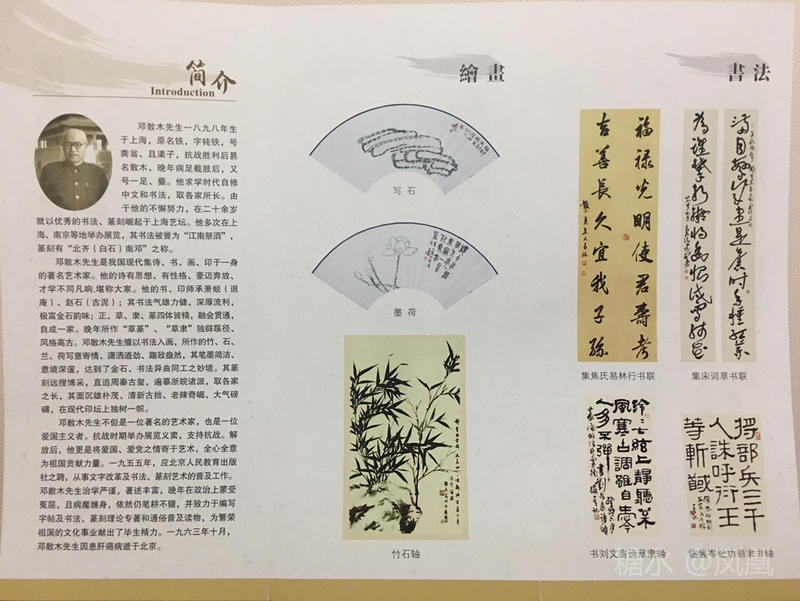 简介
Introduction
邓散木先生一八九八年生
于上海，原名铁，字钝铁，号
粪翁、且渠子，抗战胜利后易
名散木，晚年病足截肢后，又
号一足、夔。他求学时代自修
中文和书法，取各家所长。由
于他的不懈努力，在二十余岁
就以优秀的书法、篆刻崛起于上海艺坛。他多次在上
海、南京等地举办展览，其书法被誉为“江南祭酒”，
篆刻有“北齐（白石）南邓”之称。
邓散木先生是我国现代集诗、书、画、印于一身
的著名艺术家。他的诗有思想、有性格、豪迈奔放、
才学不同凡响，堪称大家。他的书、印师承萧蜕（退
庵）、赵石（古泥）；其书法气雄力健、深厚流利，
极富金石韵味；正、草、隶、篆四体皆精，融会贯通，
自成一家。晚年所作“草篆”、“草隶”独辟蹊径、
风格高古。邓散木先生擅以书法入画，所作的竹、石、
兰、荷写意寄情、潇洒遒劲、趣致盎然，其笔墨简洁、
意境深邃，达到了金石、书法异曲同工之妙境。其篆
刻远搜博采，直追周秦古玺，遍摹浙皖诸派，取各家
之长，其面沉雄朴茂、清新古拙、老辣奇崛、大气磅
礴，在现代印坛上独树一帜。
邓散木先生不但是一位著名的艺术家，也是一位
爱国主义者。抗战时期举办展览义卖，支持抗战。解
放后，他更是将爱国、爱党之情寄于艺术，全心全意
为祖国贡献力量。一九五五年，应北京人民教育出版
社之聘，从事文字改革及书法、篆刻艺术的普及工作。
邓散木先生治学严谨，著述丰富，晚年在政治上蒙受
冤屈，且病魔缠身，依然仍笔耕不辍，并致力于编写
字帖及书法、篆刻理论专著和通俗普及读物，为繁荣
祖国的文化事业献出了毕生精力。一九六三年十月，
邓散木先生因患肝癌病逝于北京。
繪畫
写石
墨荷
竹石轴
書法
福禄光明使君壽考
吉善長久宜我子孫
集焦氏易林行书联
集宋词草书联
泠泠七絃上静聽松
風寒古調雖自愛今
人多不彈
书刘文房诗草隶轴
将部兵三千
人誅呼衍王
等斬馘
临裴岑纪功刻隶书轴
糖水 @凤凰